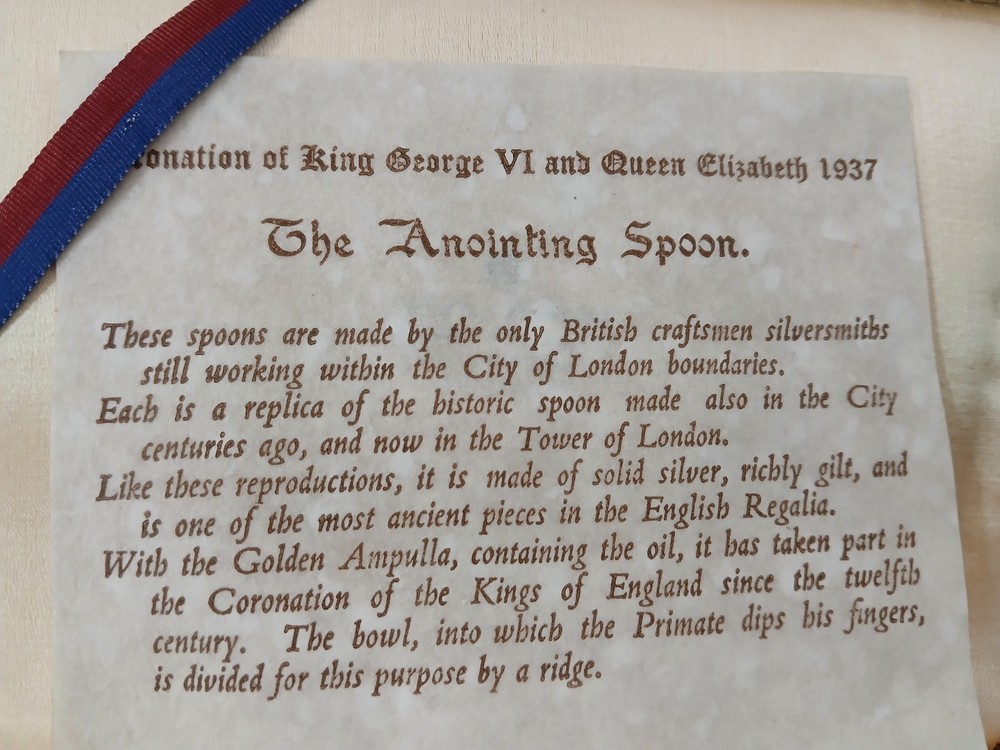 ronation of King George VI and Queen Elizabeth 1937
The Anointing Spoon.
These spoons are made by the only British craftsmen silversmiths
still working within the City of London boundaries.
Each is a replica of the historic spoon made also in the City
centuries ago, and now in the Tower of London.
Like these reproductions, it is made of solid silver, richly gilt, and
is one of the most ancient pieces in the English Regalia.
With the Golden Ampulla, containing the oil, it has taken part in
the Coronation of the Kings of England since the twelfth
century. The bowl, into which the Primate dips his fingers,
is divided for this purpose by a ridge.